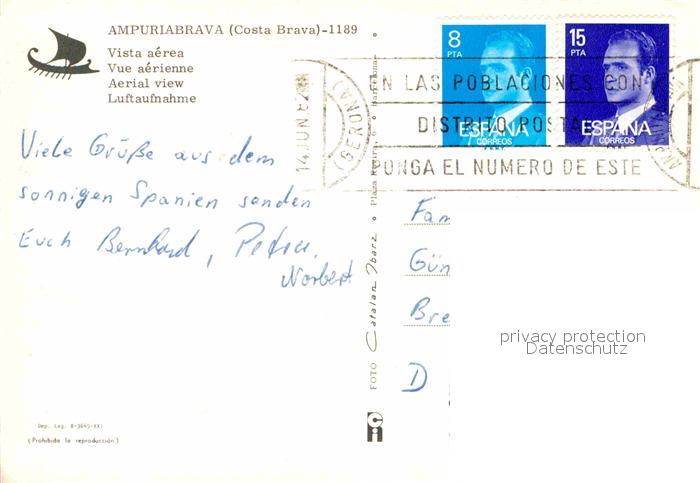 AMPURIABRAVA (Costa Brava)-1189
Vista aérea
Vue aérienne
Aerial view
Luftaufnahme
8
PTA
ESPAÑA
CORREOS
15
PTA
ESPAÑA
CORREOS
14 JUN 82
(GERONA)
EN LAS POBLACIONES CON
DISTRITO POSTA
PONGA EL NUMERO DE ESTE
Viele Grüße aus dem
sonnigen Spanien senden
Euch Bernhard, Petra,
Norbert
Fam
Gün
Bre
D
privacy protection
Datenschutz
FOTO Catalan Ibarz
Barcelona
Dep. Leg. B-3645-XXI
(Prohibida la reproducción)